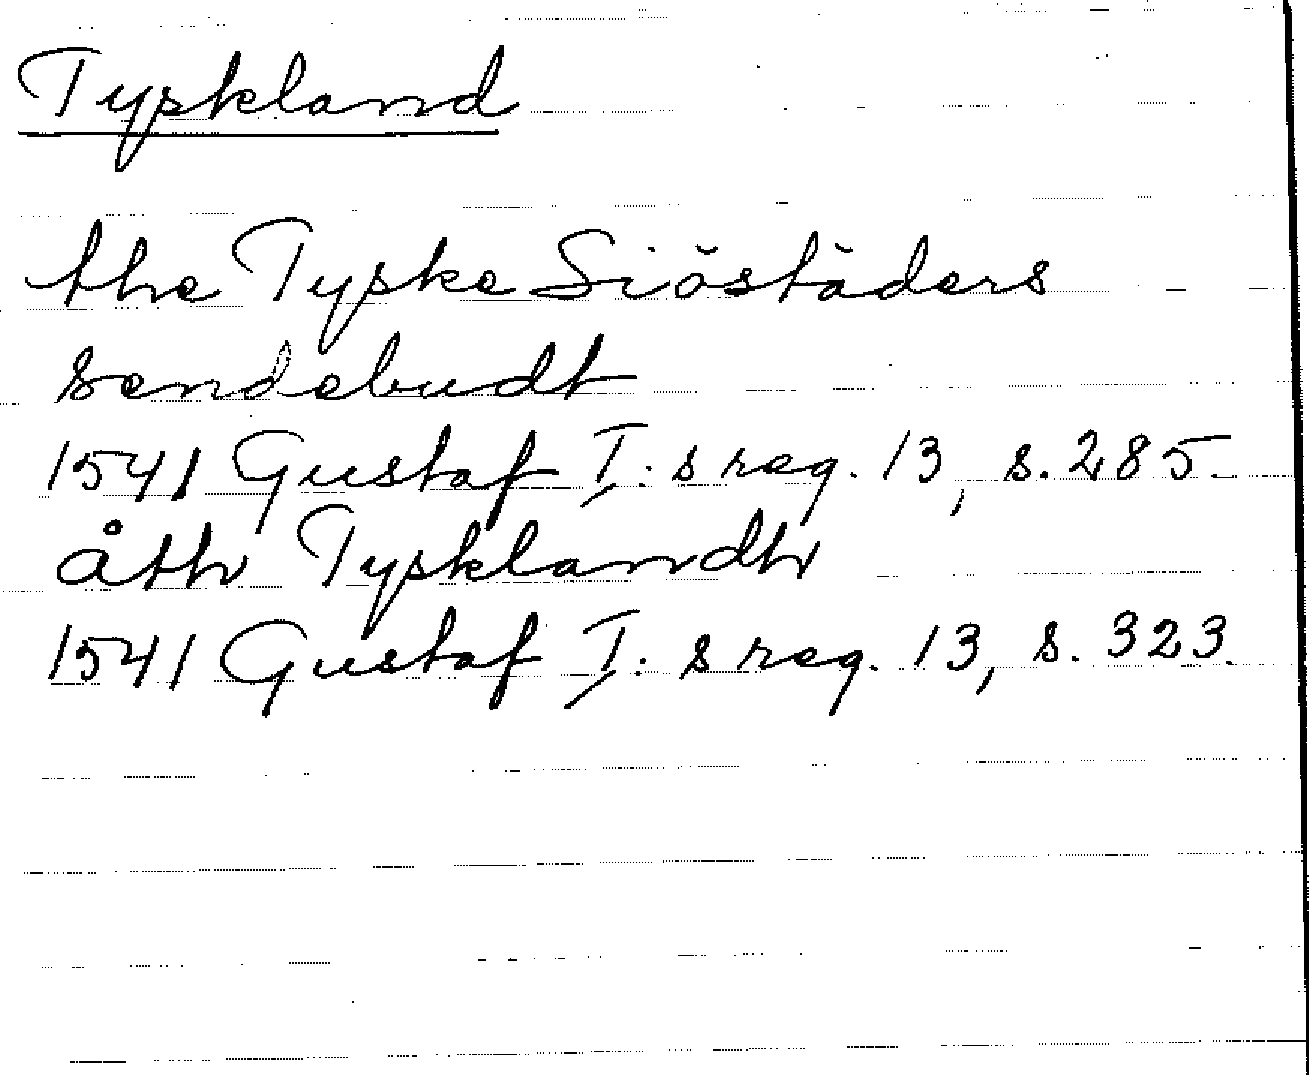 Tyskland
the Tyske Siöstäders
sendebudt
1541 Gustaf I:s reg. 13, s. 285.
åth Tysklandh
1541 Gustaf I:s reg. 13, s. 323.